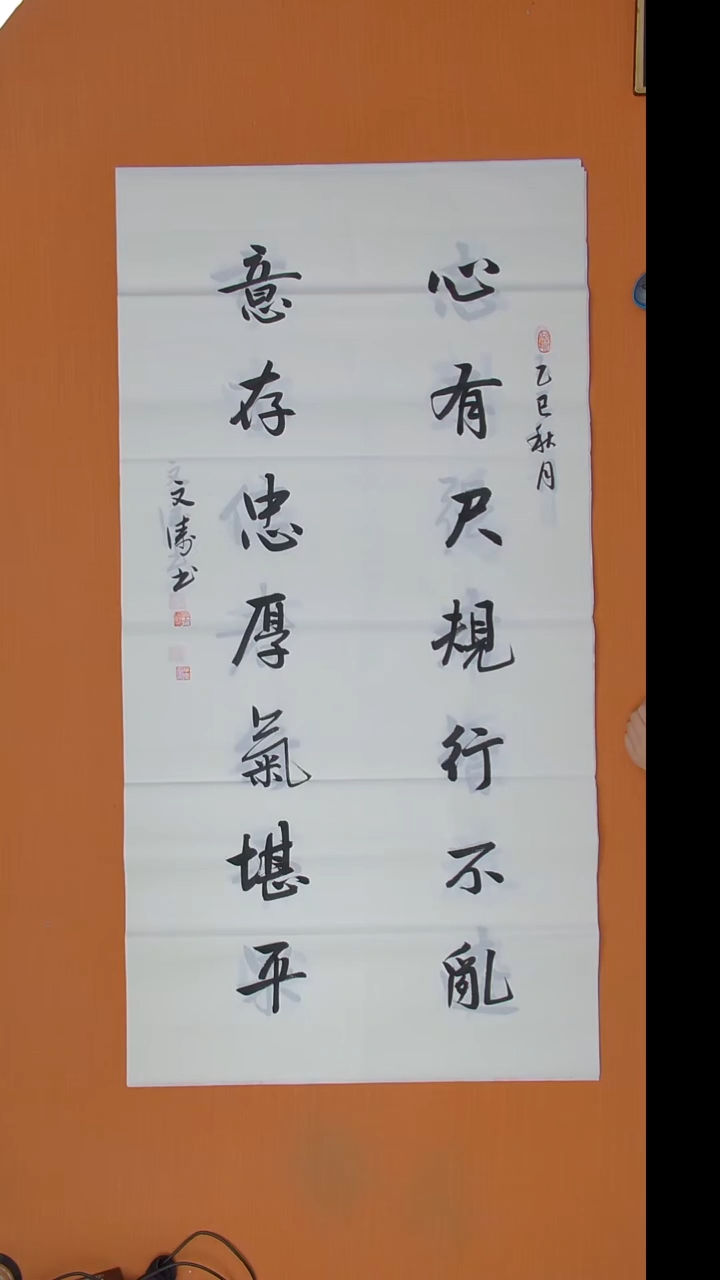 乙巳秋月
心有尺規行不亂
意存忠厚氣堪平
文濤书